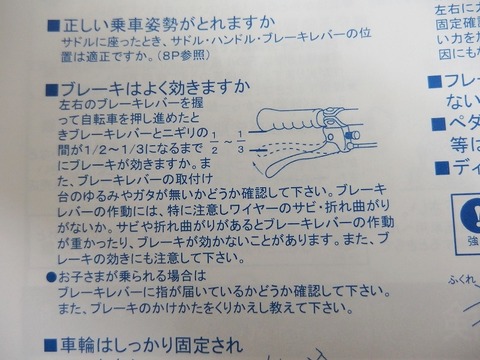 ■正しい乗車姿勢がとれますか
サドルに座ったとき、サドル・ハンドル・ブレーキレバーの位
置は適正ですか。(8P参照)
■ブレーキはよく効きますか
左右のブレーキレバーを握
って自転車を押し進めたと
きブレーキレバーとニギリの
間が1/2〜1/3になるまで
にブレーキが効きますか。ま
た、ブレーキレバーの取付け
台のゆるみやガタが無いかどうか確認して下さい。ブレーキ
レバーの作動には、特に注意しワイヤーのサビ・折れ曲がり
がないか。サビや折れ曲がりがあるとブレーキレバーの作動
が重かったり、ブレーキが効かないことがあります。また、ブ
レーキの効きにも注意して下さい。
1/2 〜 1/3
●お子さまが乗られる場合は
ブレーキレバーに指が届いているかどうか確認して下さい。
また、ブレーキのかけかたをくりかえし教えて下さい。
■車輪はしっかり固定され
左右に力
固定確認
い力をた
因にもな
■フレー
ない
■ペダ
等は
■ディ
強
ふくれ